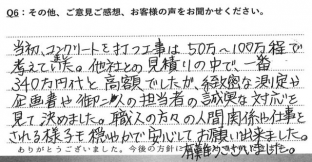 Q6：その他、ご意見ご感想、お客様の声をお聞かせください。
当初、コンクリートを打つ工事は50万〜100万程で
考えていました。他社との見積りの中で一番
340万円代と高額でしたが、緻密な測定や
企画書や御二人の担当者の誠実な対応を
見て決めました。職人の方々の人間関係や仕事を
される様子も穏やかで安心してお願い出来ました。
ありがとうございました。今後の方針に
有難うございました。